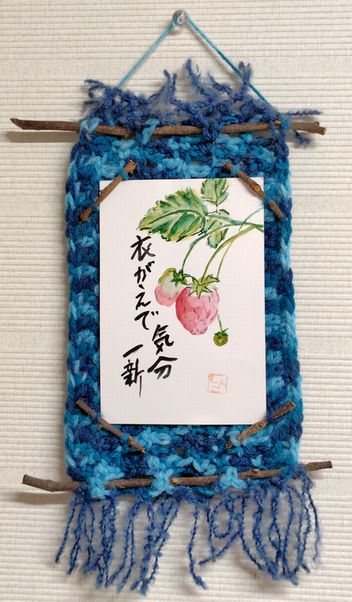 衣がえで
気分
一新